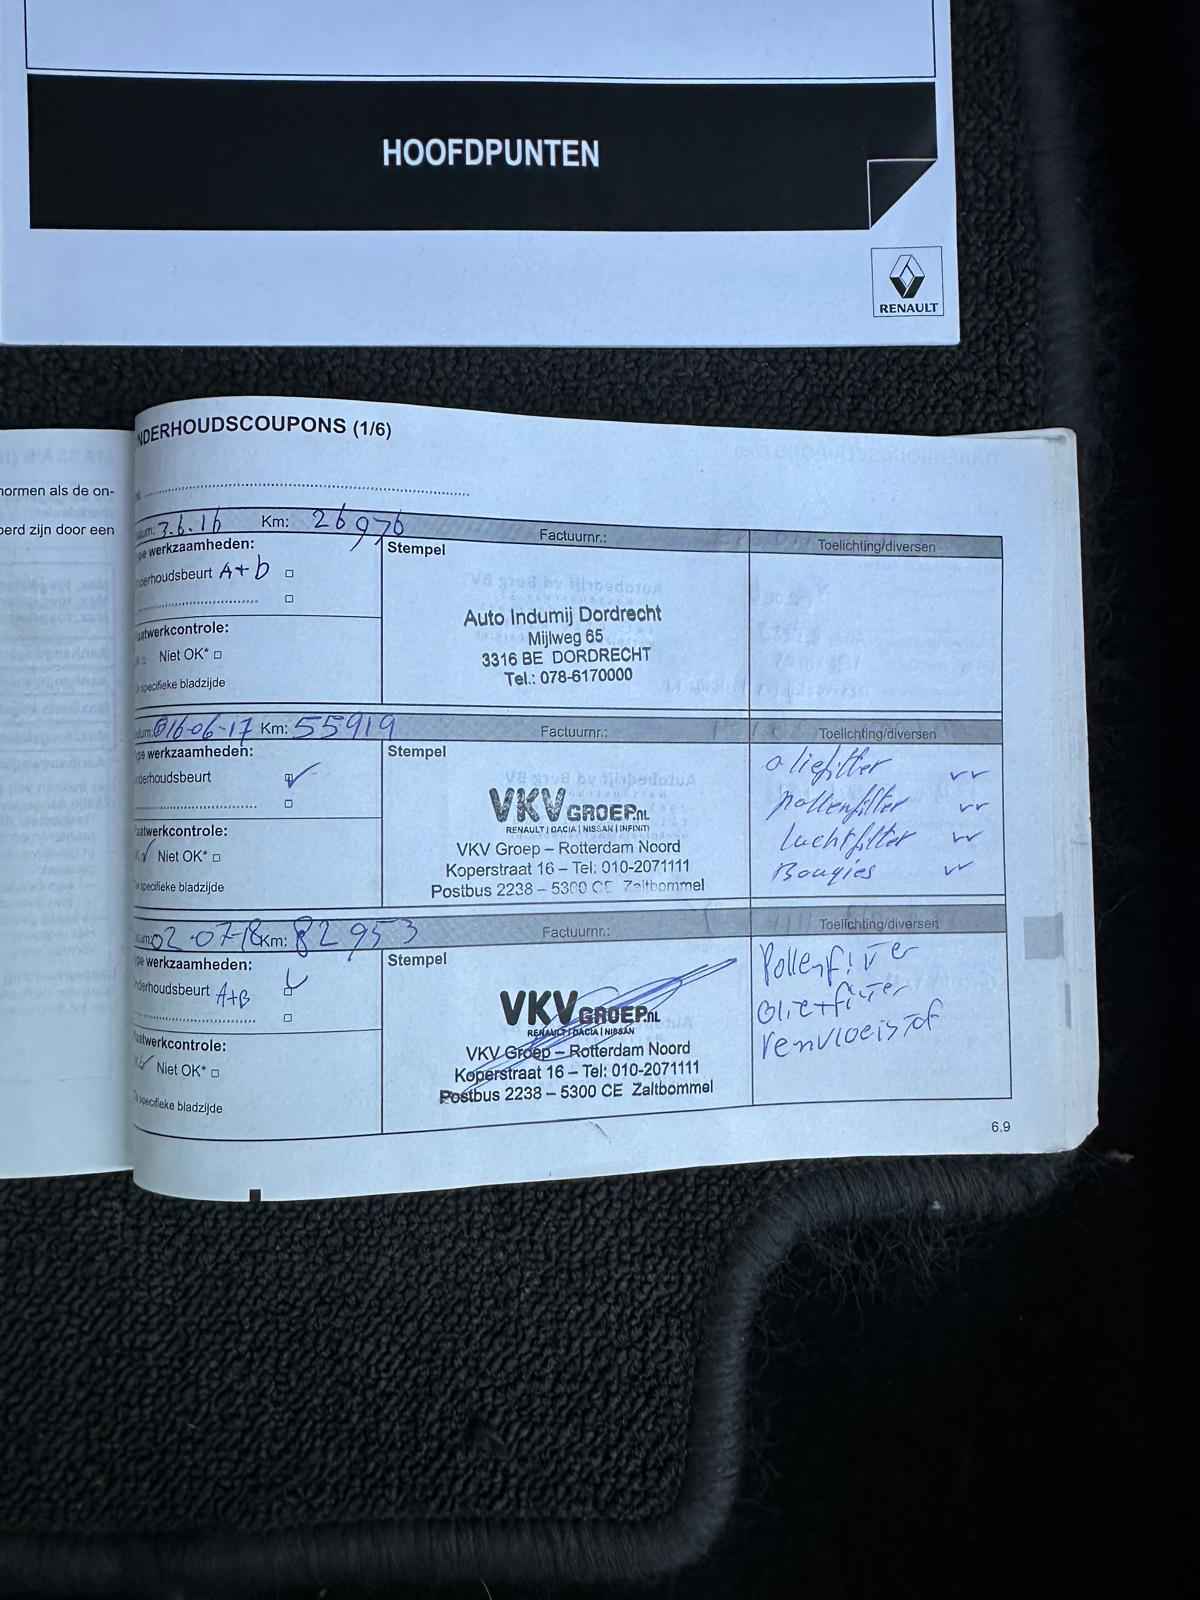 HOOFDPUNTEN
RENAULT
normen als de on-
oerd zijn door een
NDERHOUDSCOUPONS (1/6)
um: 3.6.16 Km: 26976 Factuurnr.: Toelichting/diversen
pe werkzaamheden:
derhoudsbeurt A+b
Stempel
Auto Indumij Dordrecht
Mijlweg 65
3316 BE DORDRECHT
Tel.: 078-6170000
aatwerkcontrole:
Niet OK*
e specifieke bladzijde
tum: 16-06-17 Km: 55919 Factuurnr.: Toelichting/diversen
pe werkzaamheden:
derhoudsbeurt
Stempel
VKV GROEP.NL
RENAULT | DACIA | NISSAN | INFINITI
VKV Groep – Rotterdam Noord
Koperstraat 16 – Tel: 010-2071111
Postbus 2238 – 5300 CE Zaltbommel
oliefilter
pollenfilter
luchtfilter
Bougies
aatwerkcontrole:
Niet OK*
e specifieke bladzijde
tum: 02-07-18 Km: 82953 Factuurnr.: Toelichting/diversen
pe werkzaamheden:
derhoudsbeurt A+B
Stempel
VKV GROEP.NL
RENAULT | DACIA | NISSAN
VKV Groep – Rotterdam Noord
Koperstraat 16 – Tel: 010-2071111
Postbus 2238 – 5300 CE Zaltbommel
Pollenfilter
Oliefilter
remvloeistof
aatwerkcontrole:
Niet OK*
e specifieke bladzijde
6.9